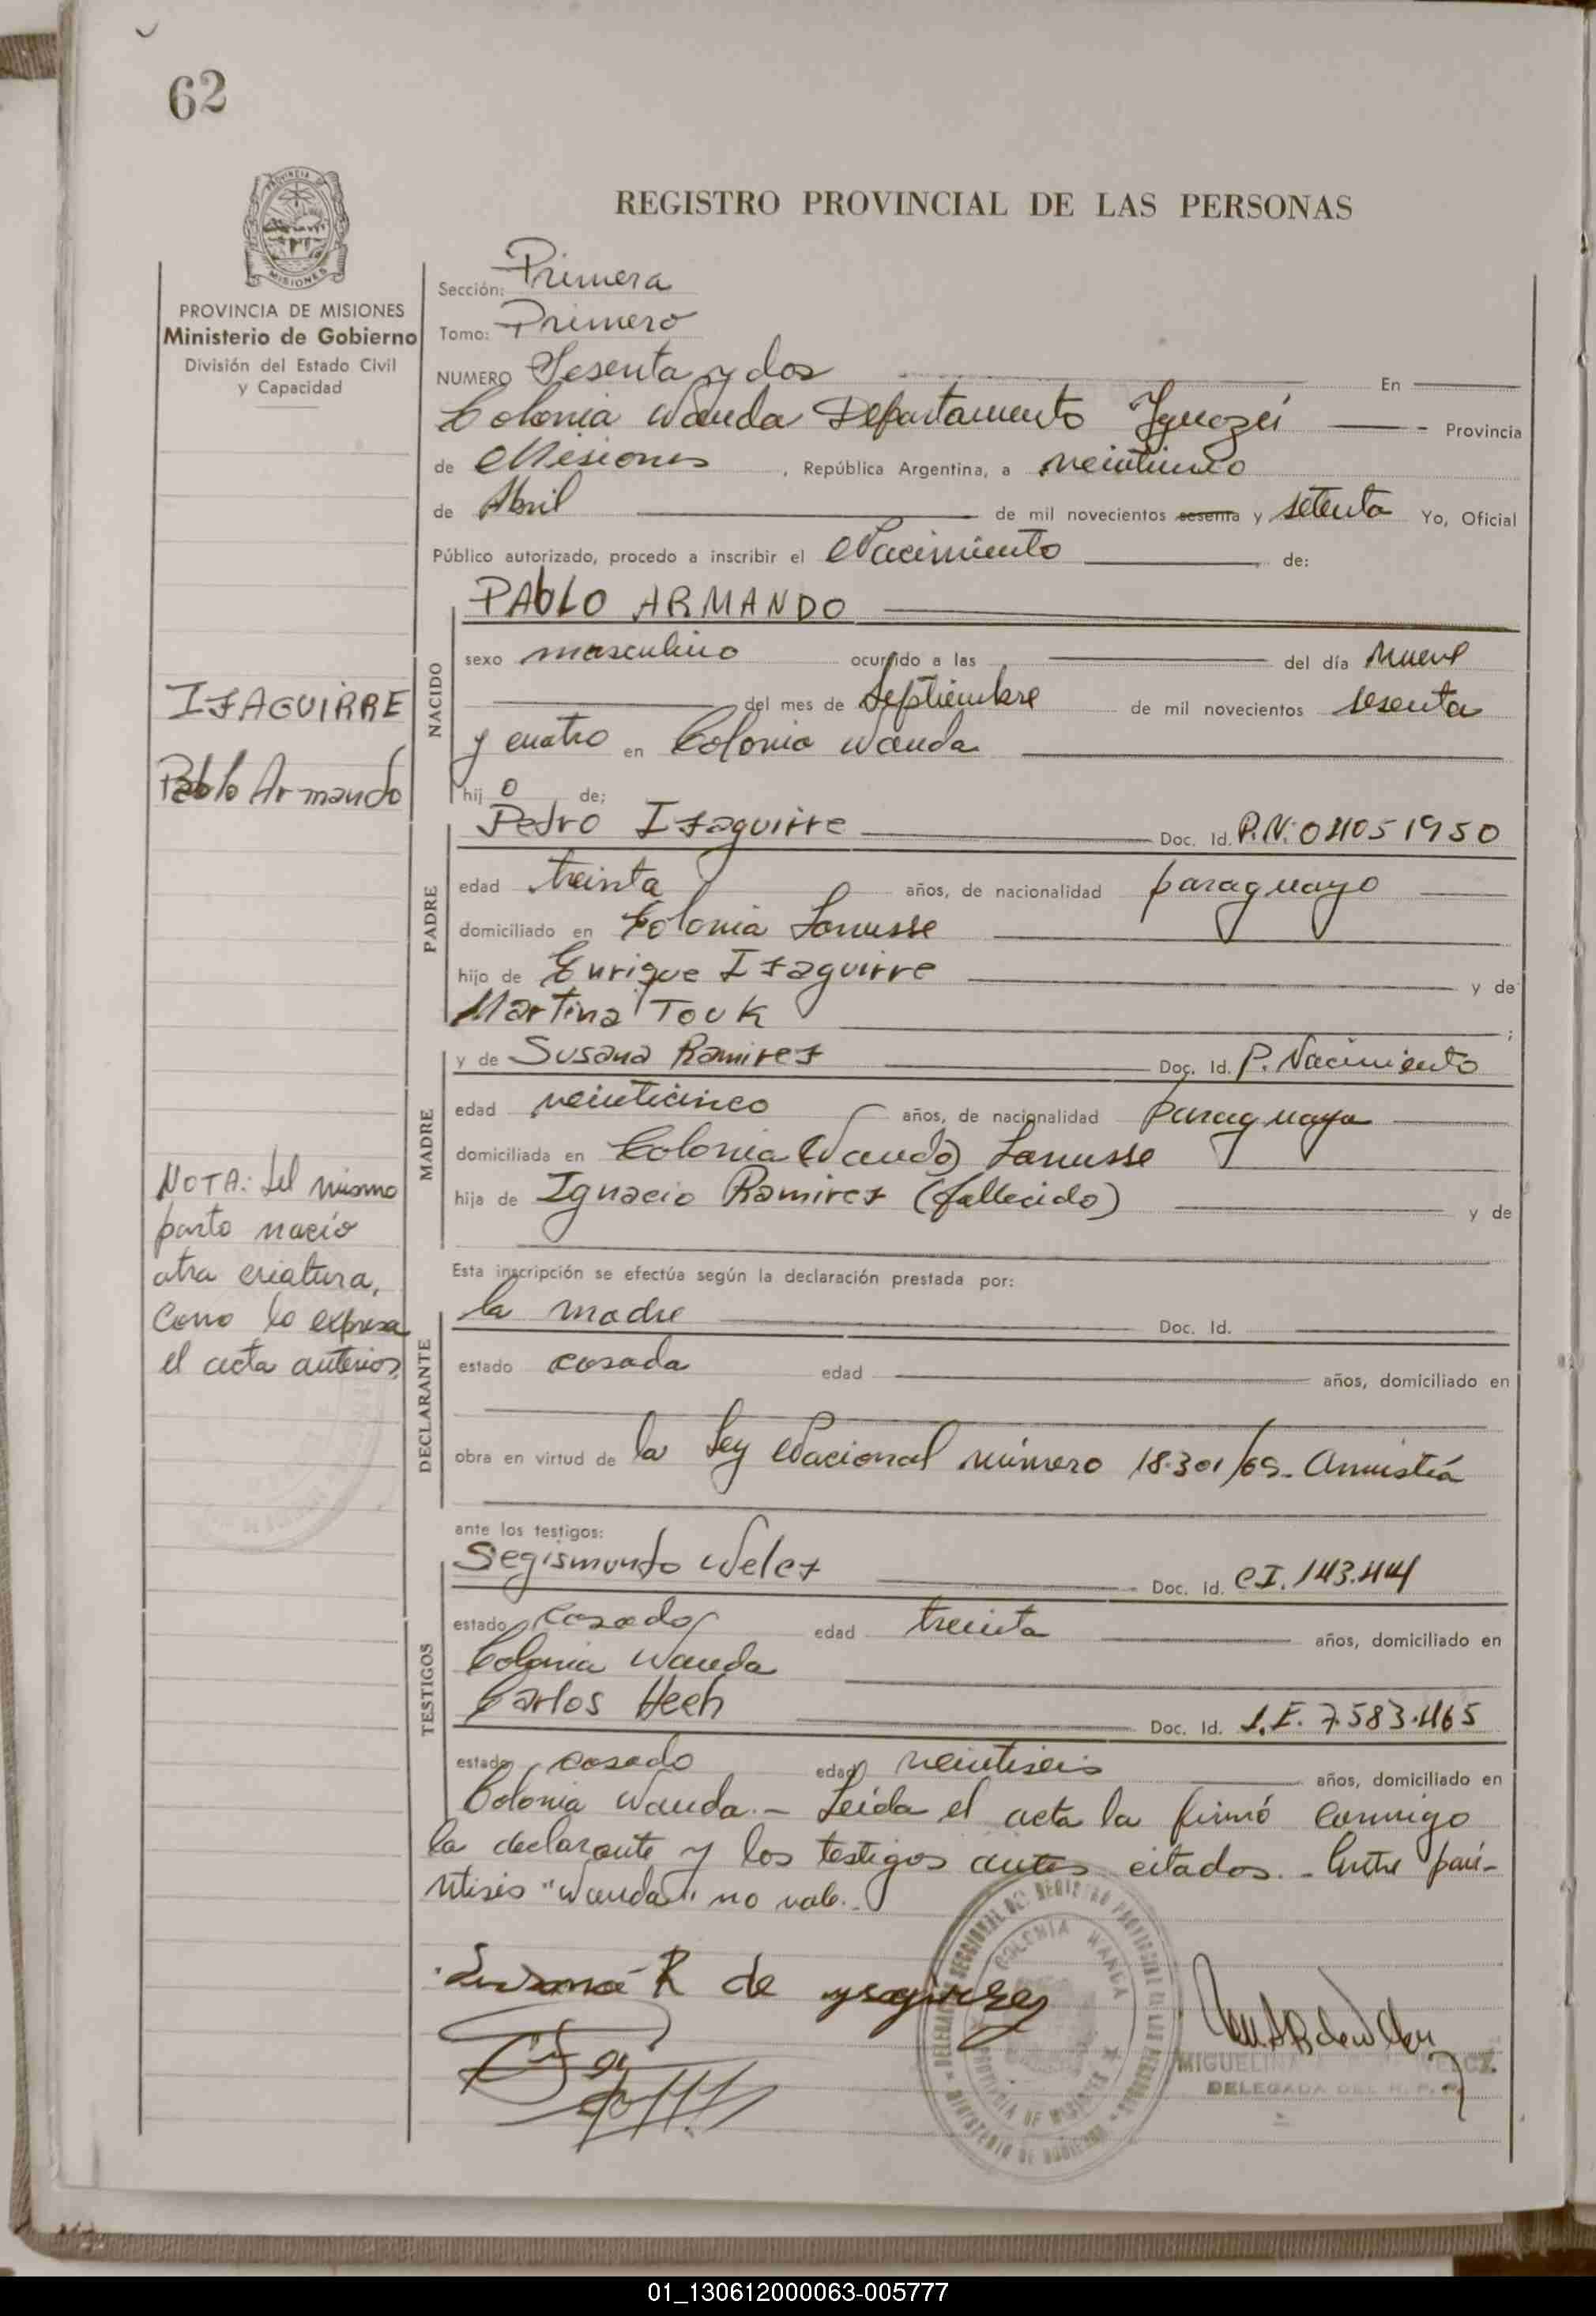 62
REGISTRO PROVINCIAL DE LAS PERSONAS
PROVINCIA DE MISIONES
Ministerio de Gobierno
División del Estado Civil
y Capacidad
Sección: Primera
Tomo: Primero
NUMERO Sesenta y dos En
Colonia Wanda Departamento Iguazú Provincia
de Misiones, República Argentina, a
de Abril de mil novecientos sesenta y setenta Yo, Oficial
Público autorizado, procedo a inscribir el Nacimiento de:
NACIDO
PABLO ARMANDO
sexo masculino ocurrido a las del día nueve
del mes de Septiembre de mil novecientos sesenta
y cuatro en Colonia Wanda
hijo de:
IZAGUIRRE
Pablo Armando
PADRE
Pedro Izaguirre Doc. Id. P.N: 04051950
edad treinta años, de nacionalidad paraguayo
domiciliado en Colonia Lanusse
hijo de Enrique Izaguirre y de
Martina Touk ;
MADRE
y de Susana Ramirez Doc. Id. P. Nacimiento
edad veinticinco años, de nacionalidad paraguaya
domiciliada en Colonia (Wanda) Lanusse
hija de Ignacio Ramirez (fallecido) y de
NOTA: Del mismo
parto nació
otra criatura,
como lo expresa
el acta anterior.
DECLARANTE
Esta inscripción se efectúa según la declaración prestada por:
la madre Doc. Id.
estado casada edad años, domiciliado en
obra en virtud de la Ley Nacional número 18.301/69.- Amnistía
TESTIGOS
ante los testigos:
Segismundo Welez Doc. Id. CI. 143.444
estado casado edad treinta años, domiciliado en
Colonia Wanda
Carlos Hech Doc. Id. L.E. 7.583.465
estado casado edad veintiseis años, domiciliado en
Colonia Wanda.- Leida el acta la firmó conmigo
la declarante y los testigos antes citados.- Entre parén-
tisis "Wanda" no vale.-
Susana R de ysagirrez
DELEGACION SECCIONAL DEL REGISTRO PROVINCIAL DE LAS PERSONAS
COLONIA WANDA
PROVINCIA DE MISIONES
MINISTERIO DE GOBIERNO
MIGUELINA
DELEGADA DEL R. P. P.
01_130612000063-005777